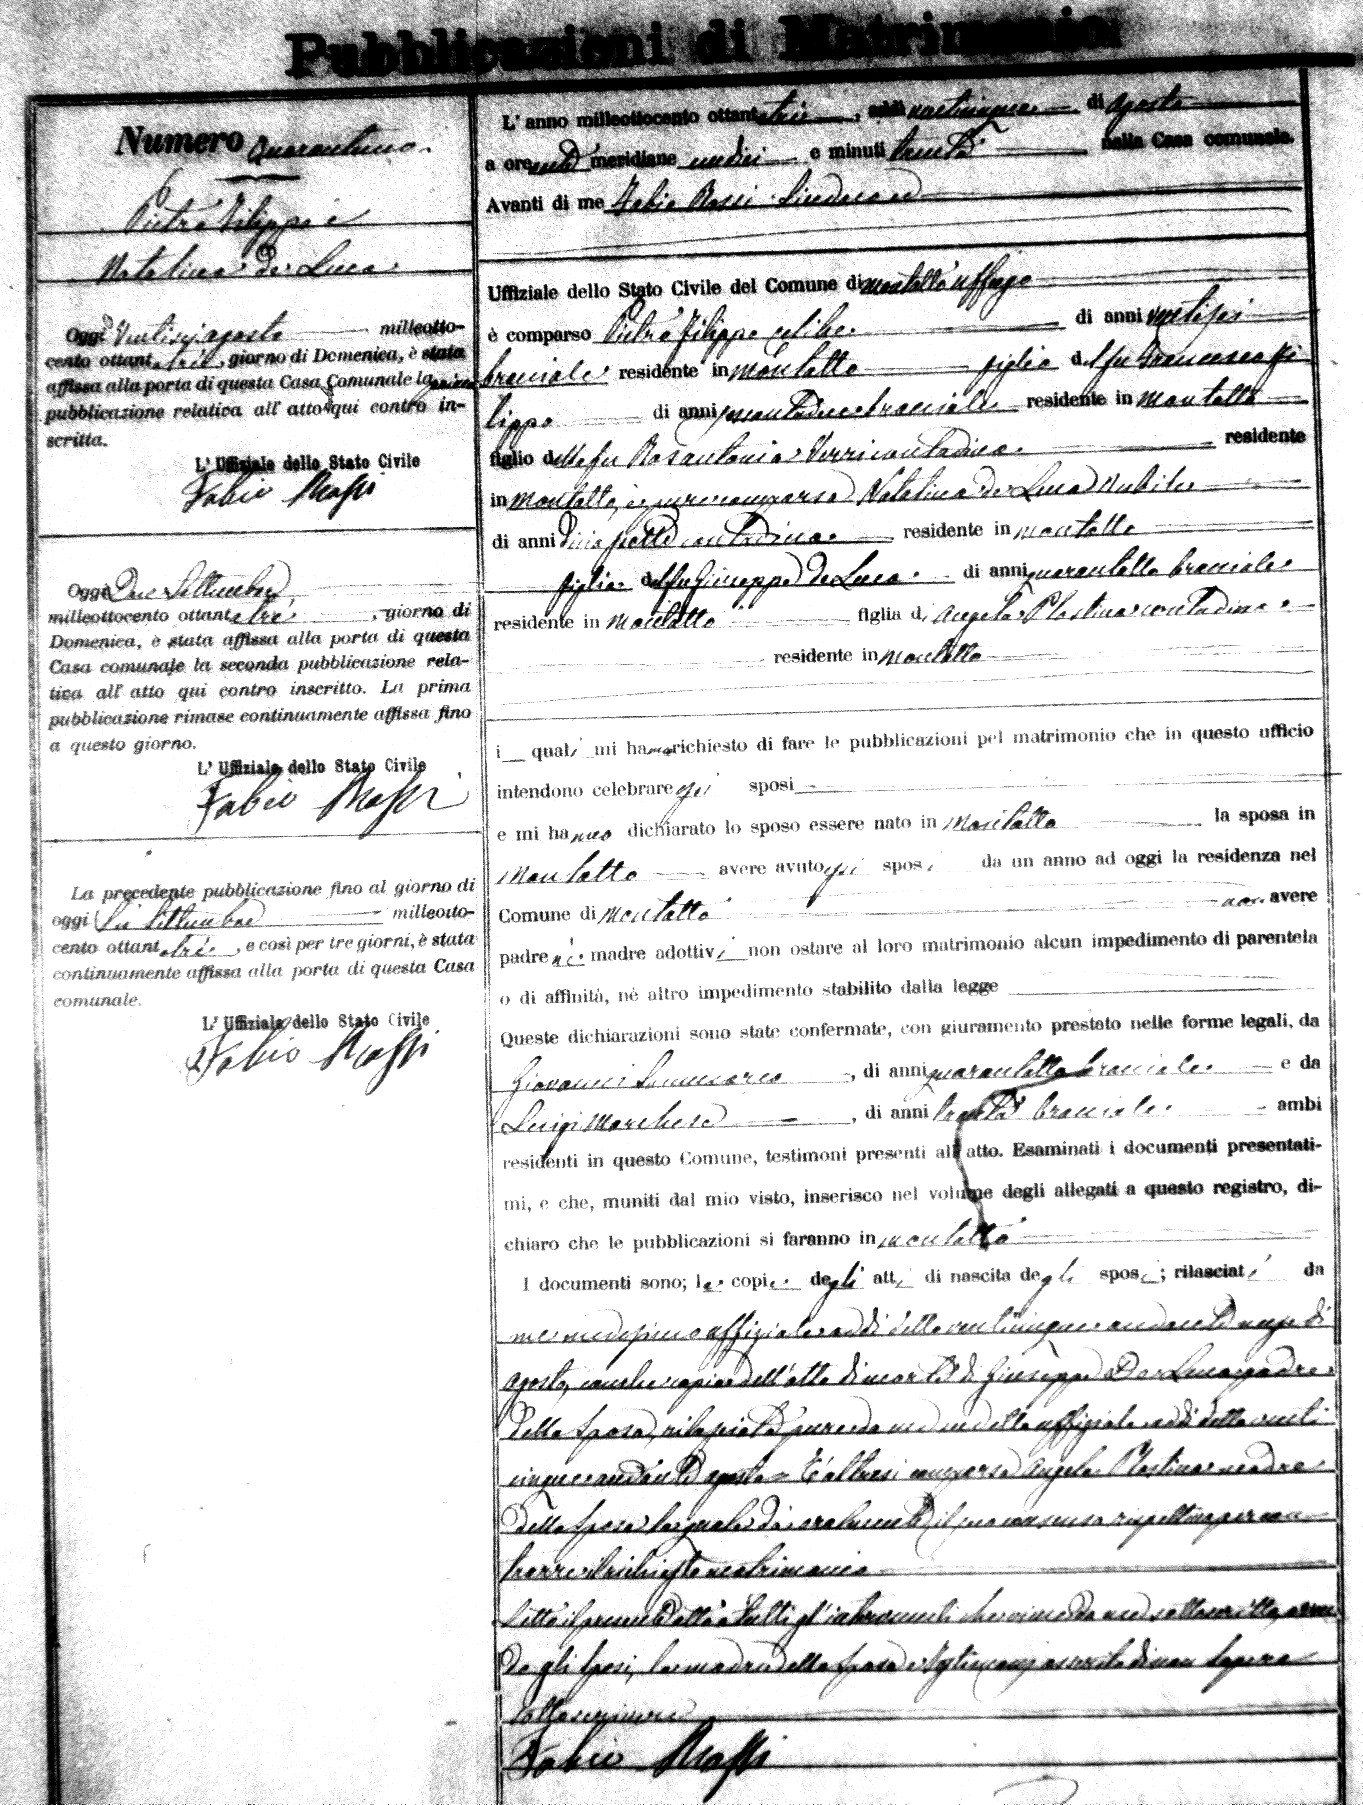 Pubblicazioni di Matrimonio.
Numero Quarantuno.
Pietro Filippo e
Natalina de Luca
Oggi Ventisei agosto milleotto-
cento ottantatrè, giorno di Domenica, è stata
affissa alla porta di questa Casa Comunale la prima
pubblicazione relativa all' atto qui contro in-
scritta.
L' Uffiziale dello Stato Civile
Fabio Rossi
Oggi Due Settembre
milleottocento ottantatrè, giorno di
Domenica, è stata affissa alla porta di questa
Casa comunale la seconda pubblicazione rela-
tiva all' atto qui contro inscritto. La prima
pubblicazione rimase continuamente affissa fino
a questo giorno.
L' Uffiziale dello Stato Civile
Fabio Rossi
La precedente pubblicazione fino al giorno di
oggi Sei Settembre milleotto-
cento ottantatrè, e così per tre giorni, è stata
continuamente affissa alla porta di questa Casa
comunale.
L' Uffiziale dello Stato Civile
Fabio Rossi
L' anno milleottocento ottantatrè, addì venticinque di Agosto
a ore anti meridiane undici e minuti trenta nella Casa comunale.
Avanti di me Fabio Rossi Sindaco ed
Uffiziale dello Stato Civile del Comune di Montalto Uffugo
è comparso Pietro Filippo celibe di anni ventisei
bracciale residente in Montalto figlio del fu Francesco Fi
lippo di anni bracciale residente in Montalto
figlio della fu Rosantonia contadina residente
in Montalto, è pure comparsa Natalina de Luca Nubile
di anni diciassette contadina residente in Montalto
figlia del fu Giuseppe de Luca di anni quarantotto bracciale
residente in Montalto figlia di Angela Plastina contadina
residente in Montalto
i quali mi hanno richiesto di fare le pubblicazioni pel matrimonio che in questo ufficio
intendono celebrare essi sposi
e mi hanno dichiarato lo sposo essere nato in Montalto la sposa in
Montalto avere avuto essi sposi da un anno ad oggi la residenza nel
Comune di Montalto non avere
padre nè madre adottivi non ostare al loro matrimonio alcun impedimento di parentela
o di affinità, nè altro impedimento stabilito dalla legge
Queste dichiarazioni sono state confermate, con giuramento prestato nelle forme legali, da
Giovanni Sammarco, di anni quarantotto bracciale e da
Luigi Marchese, di anni trenta bracciale ambi
residenti in questo Comune, testimoni presenti all' atto. Esaminati i documenti presentati-
mi, e che, muniti dal mio visto, inserisco nel volume degli allegati a questo registro, di-
chiaro che le pubblicazioni si faranno in Montalto
I documenti sono; le copie degli atti di nascita degli sposi; rilasciati da
me medesimo uffiziale addì detto venticinque andante mese di
agosto, anche copia dell'atto di morte di Giuseppe De Luca padre
della sposa, rilasciata pure da me detto uffiziale addì detto venti
cinque andante agosto = È altresì comparsa Angela Plastina madre
della sposa la quale dà oralmente il suo consenso rispettivo per con
trarre il richiesto matrimonio
Letto il presente atto a tutti gl'intervenuti che viene da me sottoscritto, aven
do gli sposi, la madre della sposa e testimoni asserito di non sapere
sottoscrivere
Fabio Rossi